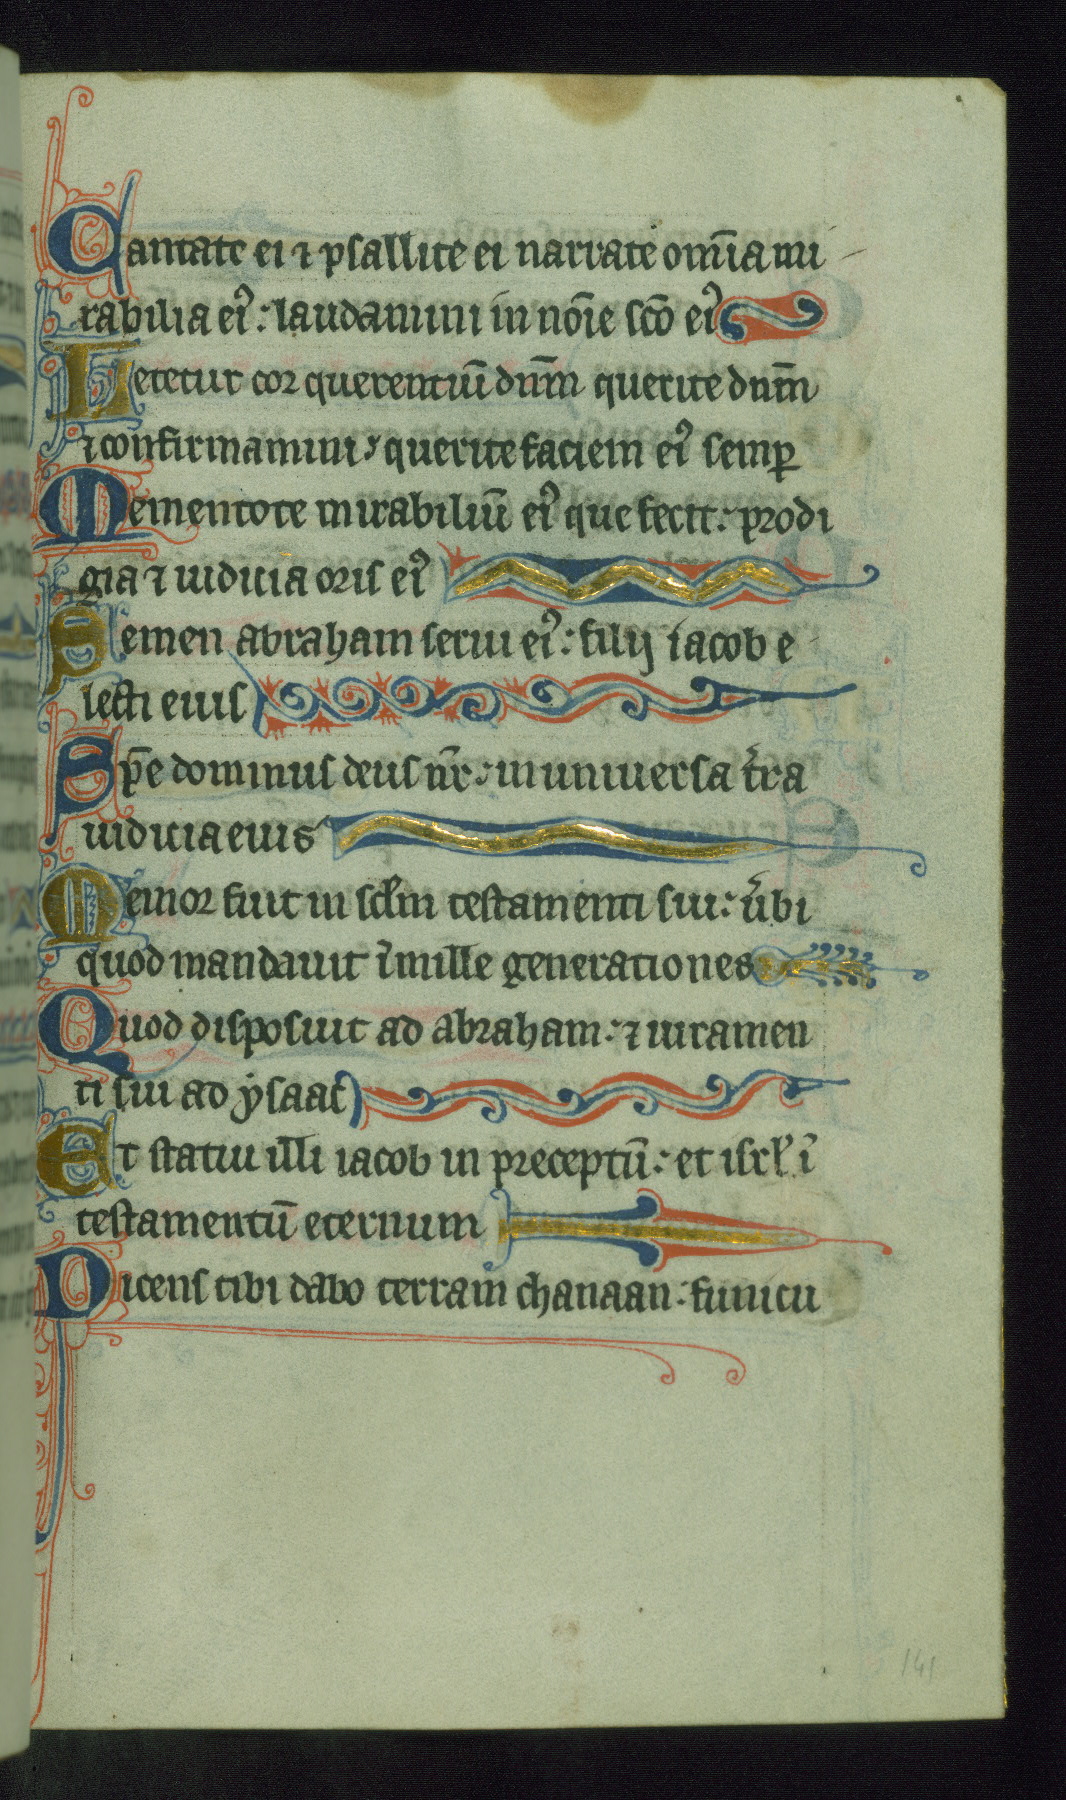 Cantate ei ⁊ psallite ei narrate om̅ia mi
rabilia eiꝰ: laudamini in no̅ie sc̅o eiꝰ
Letetur cor querentiu̅ dn̅m querite dn̅m
⁊ confirmamini: querite faciem eiꝰ semꝑ
Mementote mirabiliu̅ eiꝰ que fecit: prodi
gia ⁊ iudicia oris eiꝰ
Semen abraham serui eiꝰ: filij iacob e
lecti eius
Ip̅e dominus deus nr̅: in uniuersa t̅ra
iudicia eius
Memor fuit in sc̅lm testamenti sui: u̅bi
quod mandauit i̅ mille generationes
Quod disposuit ad abraham: ⁊ iuramen
ti sui ad ẏsaac
Et statuit illi iacob in preceptu̅: et isrl̅ i̅
testamentu̅ eternum
Dicens tibi dabo terram chanaan: funicu
141